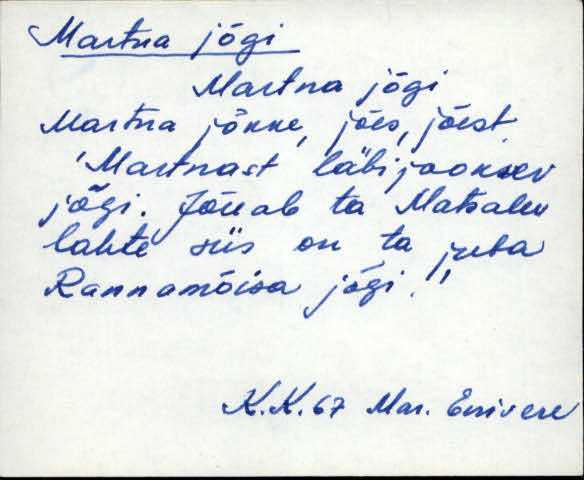 Martna jõgi
Martna jõgi
Martna jõkke, jões, jõest
'Martnast läbijooksev
jõgi. Jõuab ta Matsalu
lahte siis on ta juba
Rannamõisa jõgi.'
K.K. 67 Mar. Enivere